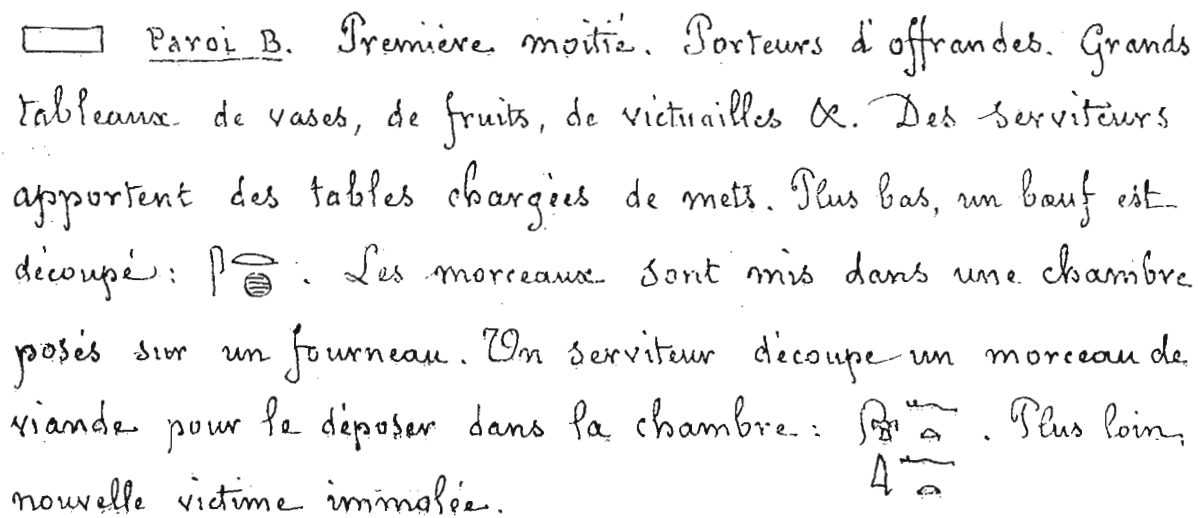 Paroi B. Première moitié. Porteurs d'offrandes. Grands
tableaux de vases, de fruits, de victuailles &. Des serviteurs
apportent des tables chargées de mets. Plus bas, un bœuf est
découpé : 𓋴𓂋𓐍. Les morceaux sont mis dans une chambre
posés sur un fourneau. Un serviteur découpe un morceau de
viande pour le déposer dans la chambre : . Plus loin,
nouvelle victime immolée.